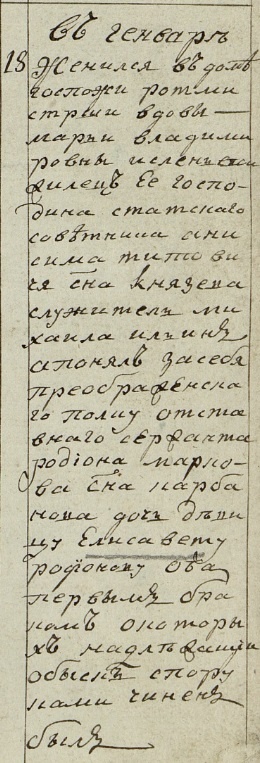 въ генварѣ
18 Женился въ домѣ
госпожи ротми
стрши вдовы
марьи владими
ровны
жилецъ Ее госпо-
дина статскаго
совѣтника они
сима титови
ча сна князева
служитель ми
хаила ильинъ
а понялъ засебя
преображенска
го полку отста
внаго сержанта
родіона марко-
ва сна карба
нова дочь дѣви
цу Елисавету
родіонову оба
первымъ бра
комъ окоторы
хъ надлѣжащи
обыскъ спору
ками чиненъ
былъ